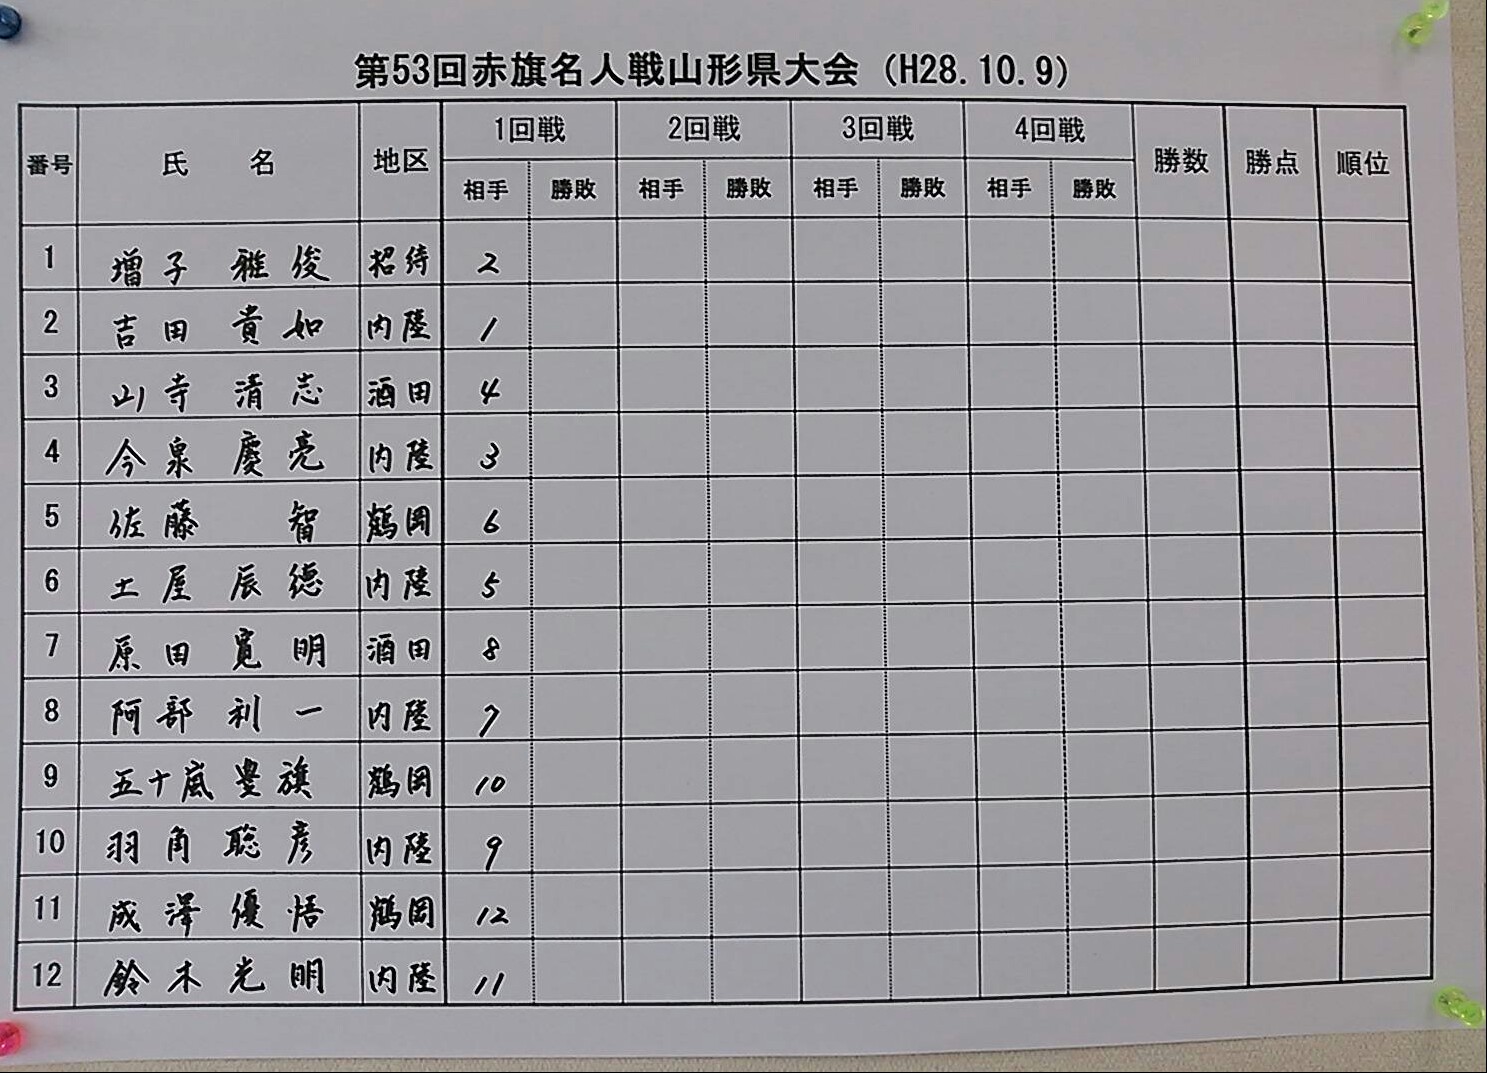 第53回赤旗名人戦山形県大会 (H28.10.9)
番号 氏 名 地区 1回戦 2回戦 3回戦 4回戦 勝数 勝点 順位
相手 勝敗 相手 勝敗 相手 勝敗 相手 勝敗
1 増子 雅俊 招待 2
2 吉田 貴如 内陸 1
3 山寺 清志 酒田 4
4 今泉 慶亮 内陸 3
5 佐藤 智 鶴岡 6
6 土屋 辰徳 内陸 5
7 原田 寛明 酒田 8
8 阿部 利一 内陸 7
9 五十嵐 豊旗 鶴岡 10
10 羽角 聡彦 内陸 9
11 成澤 優悟 鶴岡 12
12 鈴木 光明 内陸 11